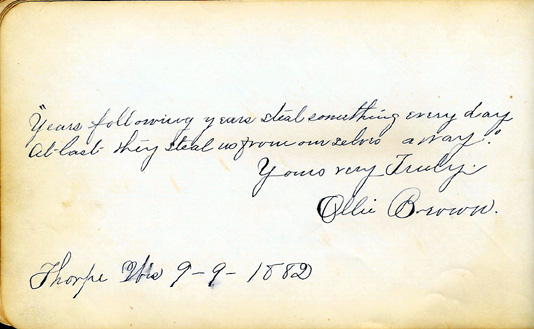 "Years following years steal something every day
At last they steal us from ourselves away."
Yours very Truly.
Ollie Brown.
Thorpe Wis 9-9-1882